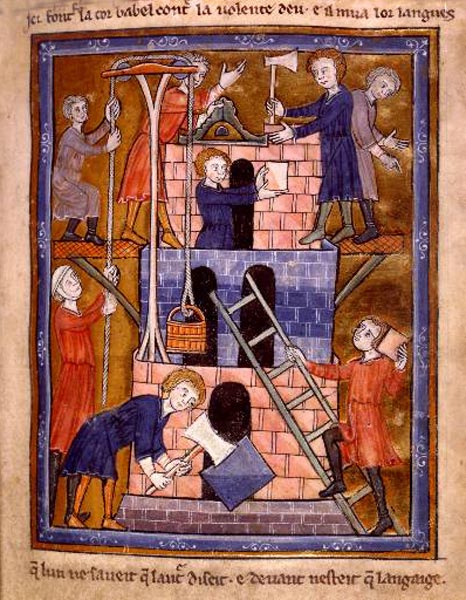 ici font la tor babel cont' la uolente deu · e il mua lor langues
q̃ lun ne saueit q̃ laut' diseit · e deuant nesteit q̃ langaige.